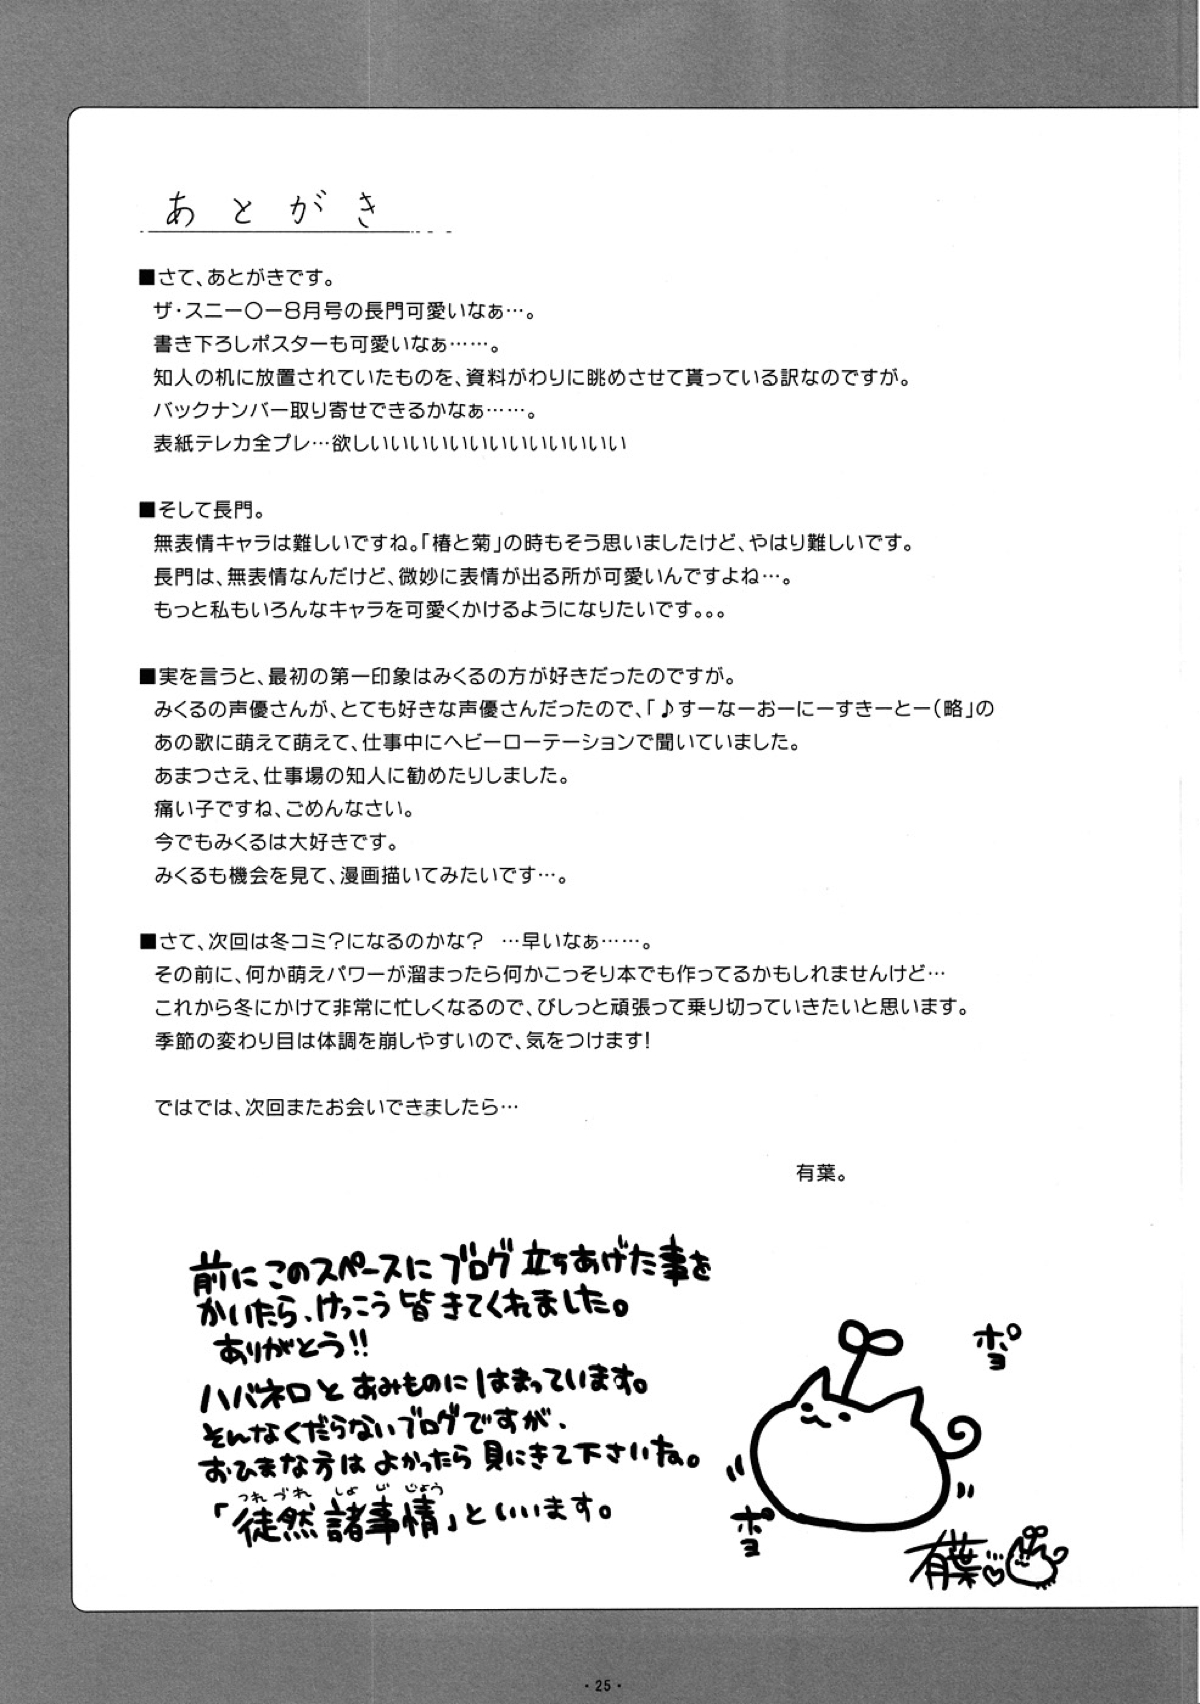 あとがき
■さて、あとがきです。
ザ・スニー〇ー8月号の長門可愛いなぁ…。
書き下ろしポスターも可愛いなぁ……。
知人の机に放置されていたものを、資料がわりに眺めさせて貰っている訳なのですが。
バックナンバー取り寄せできるかなぁ……。
表紙テレカ全プレ…欲しいいいいいいいいいいいいい
■そして長門。
無表情キャラは難しいですね。「椿と菊」の時もそう思いましたけど、やはり難しいです。
長門は、無表情なんだけど、微妙に表情が出る所が可愛いんですよね…。
もっと私もいろんなキャラを可愛くかけるようになりたいです。。。
■実を言うと、最初の第一印象はみくるの方が好きだったのですが。
みくるの声優さんが、とても好きな声優さんだったので、「♪すーなーおーにーすきーとー(略」の
あの歌に萌えて萌えて、仕事中にヘビーローテーションで聞いていました。
あまつさえ、仕事場の知人に勧めたりしました。
痛い子ですね、ごめんなさい。
今でもみくるは大好きです。
みくるも機会を見て、漫画描いてみたいです…。
■さて、次回は冬コミ？になるのかな？　…早いなぁ……。
その前に、何か萌えパワーが溜まったら何かこっそり本でも作ってるかもしれませんけど…
これから冬にかけて非常に忙しくなるので、びしっと頑張って乗り切っていきたいと思います。
季節の変わり目は体調を崩しやすいので、気をつけます！
ではでは、次回またお会いできましたら…
有葉。
前にこのスペースにブログ立ちあげた事を
かいたら、けっこう皆きてくれました。
ありがとう!!
ハバネロとあみものにはまっています。
そんなくだらないブログですが、
おひまな方はよかったら見にきて下さいね。
つれ づれ しょ じ じょう
「徒然諸事情」といいます。
ポヨ
ポヨ
有葉
・25・